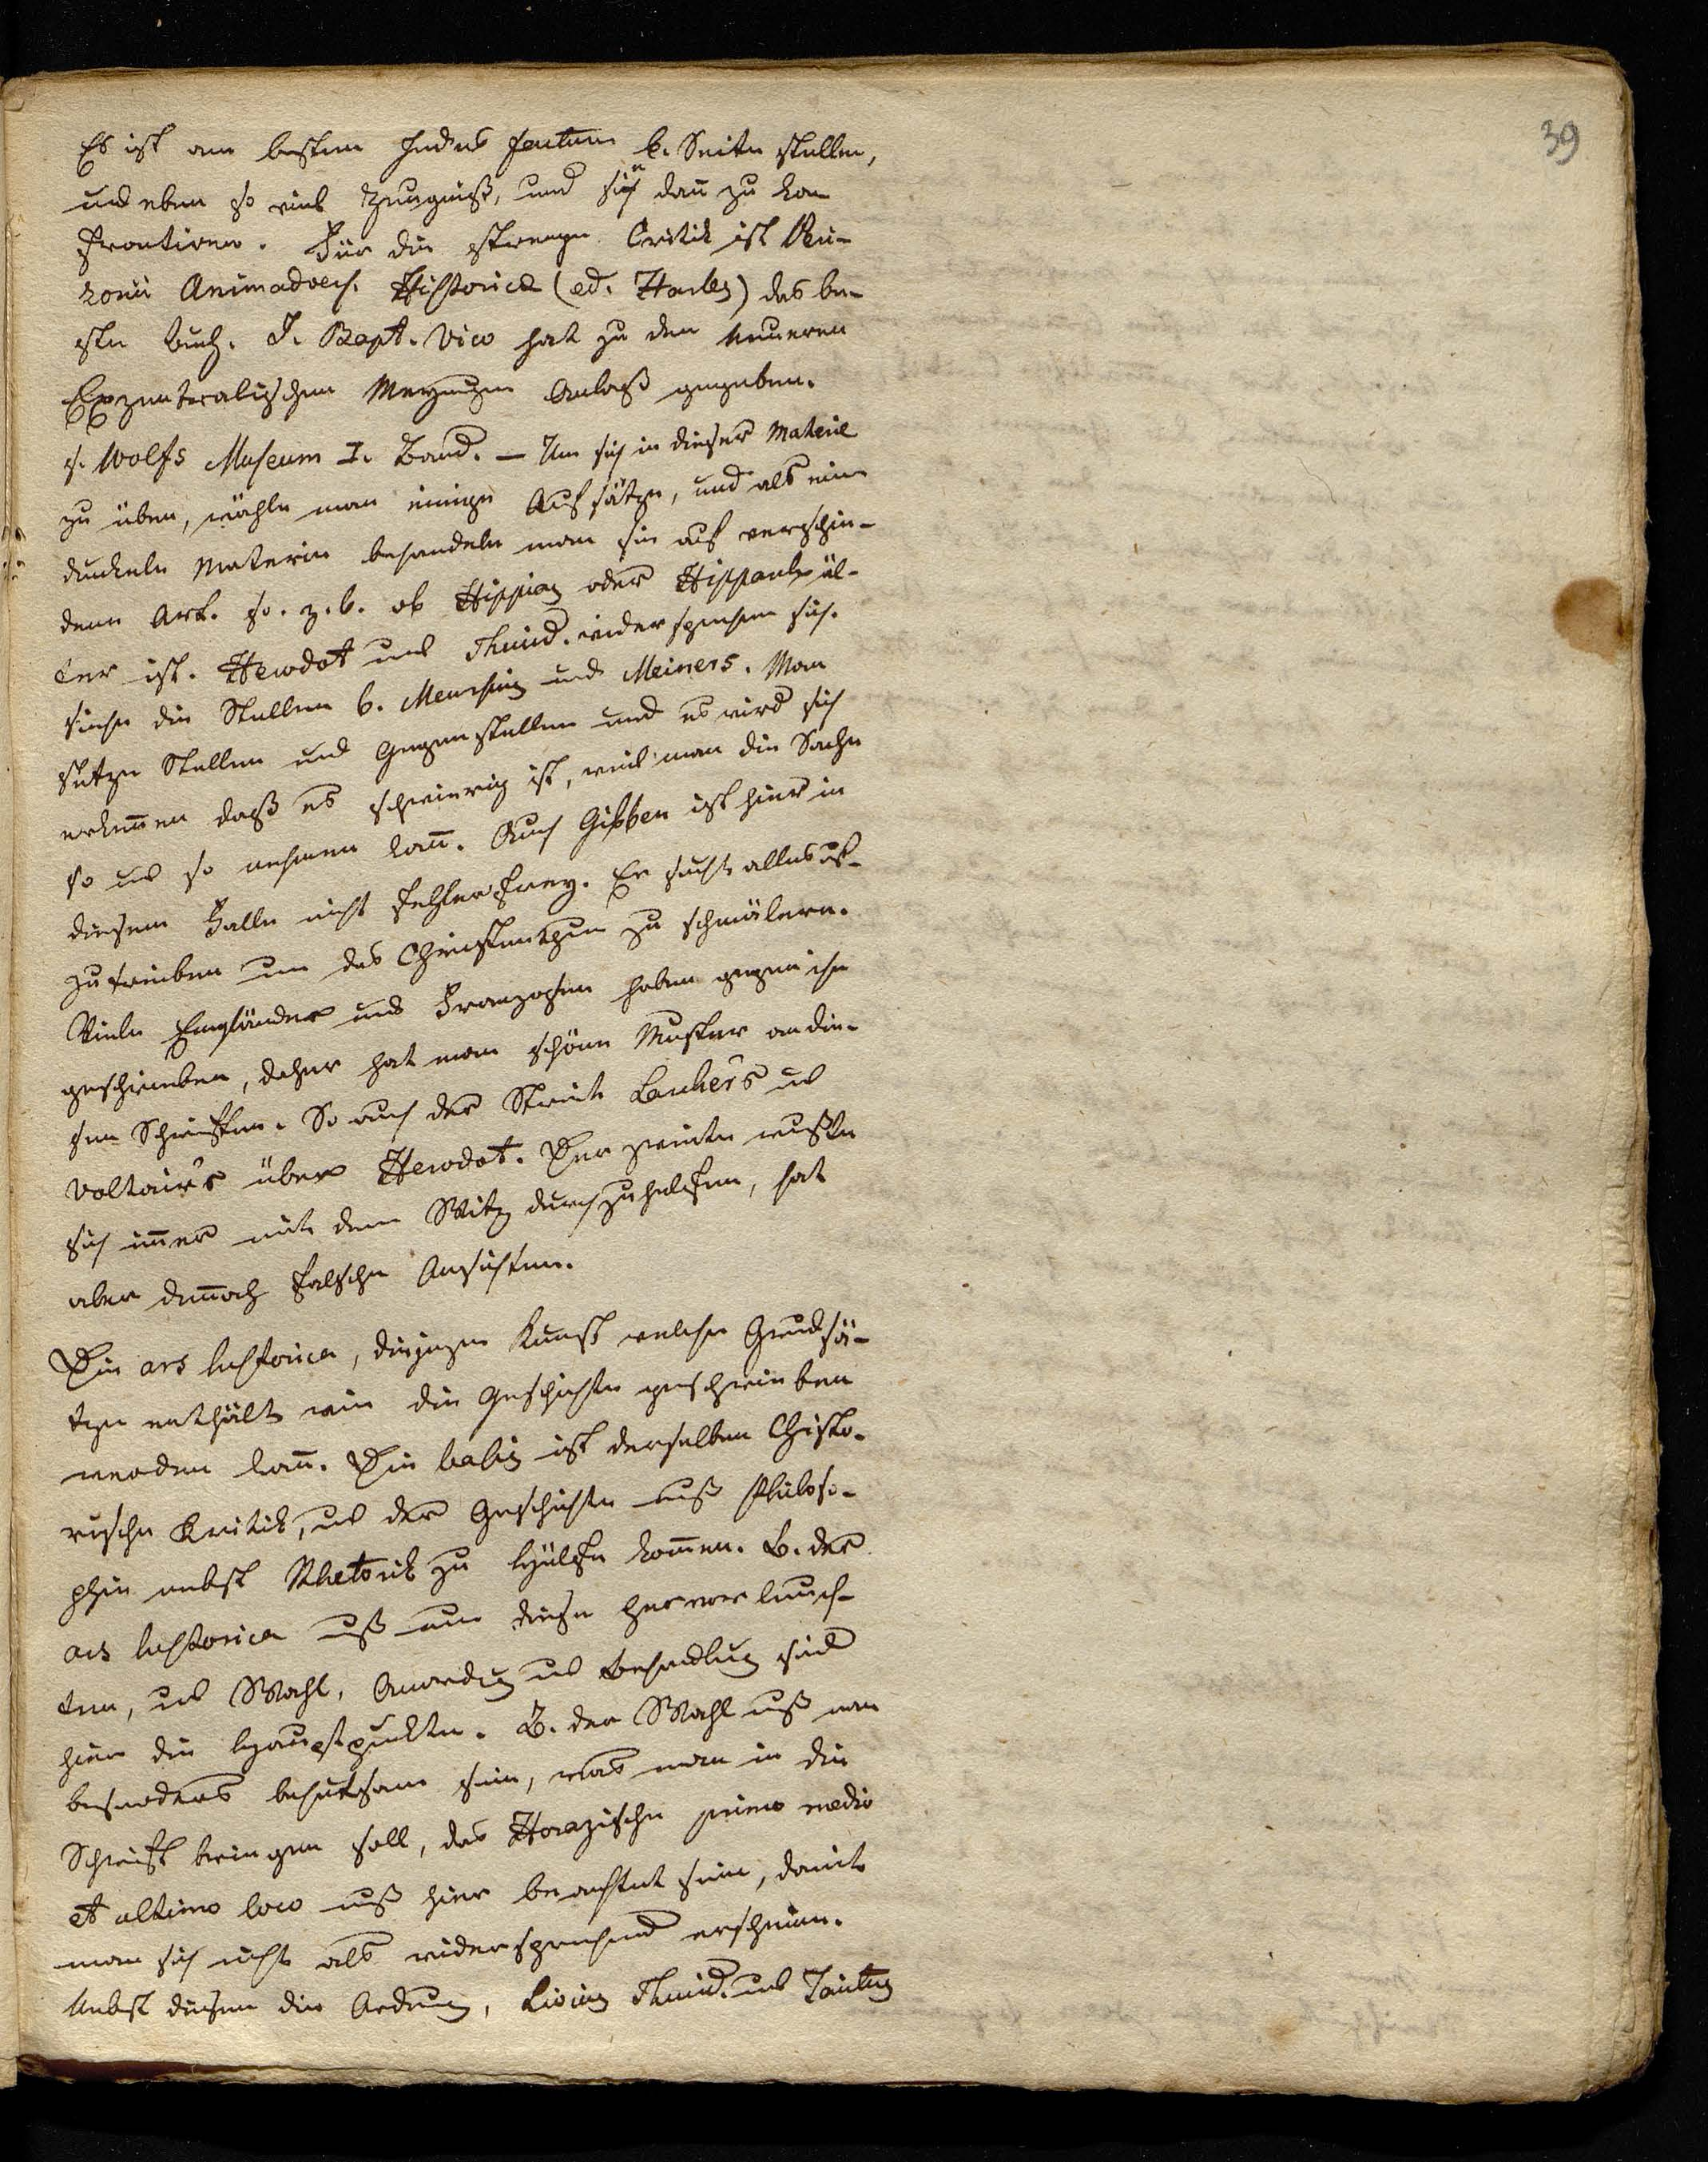 39
Es ist am besten jedes factum b. Seite stellen,
und eben so viel Zeugniß, und sie dan̄ zu kon
frontiren. Für die strenge Critik ist Peri-
zonii Animadvers. Historicæ (ed. Harles) das be-
ste Buch. J. Bapt. Vico hat zu den neueren
Exzentralischen Meynugen Anlaß gegeben.
s. Wolfs Museum I. Band. – Um sich in dieser Materie
zu üben, wähle man einige Aufsätze, und als eine
dunkele Materie behandele man sie auf verschie-
dene Art. so. z. b. ob Hippias oder Hipparch äl-
ter ist. Herodot und Thucid. widersprechen sich.
siehe die Stellen b. Meursius und Meiners. Man
setze Stellen und Gegenstellen und es wird sich
erken̄en daß es schwierig ist, weil man die Sache
so und so nehmen kan̄. Auch Gibben ist hier in
diesem Falle nicht fehlerfrey. Er sucht alles auf-
zutreiben um das Christenthum zu schmälern.
Viele Engländer und Franzosen haben gegen ihn
geschrieben, daher hat man schöne Muster an die-
sen Schriften. So auch der Streit Larchers und
Voltair's über Herodot. Der zweite wußte
sich im̄er mit dem Witz durchzuhelfen, hat
aber den̄och falsche Ansichten.
Die ars historica, diejenige Kunst welche Grundsä-
tze enthält wie die Geschichte geschrieben
werden kan̄. Die basis ist derselben Histo-
rische Kritik, und der Geschichte muß Philoso-
phie nebst Rhetorik zu Hülfe kom̄en. B. der
ars historica muß nun diese hervorleuch-
ten, und Wahl, Anordnug und Behandlug sind
hier die Hauptpunkte. B. der Wahl muß man
besonders behutsam sein, was man in die
Schrift bringen soll, das Horazische primo medio
et ultimo loco muß hier beachtet sein, damit
man sich nicht als widersprechend erscheine.
Nebst diesem die Ordnung, Livius Thucid. und Tacitus